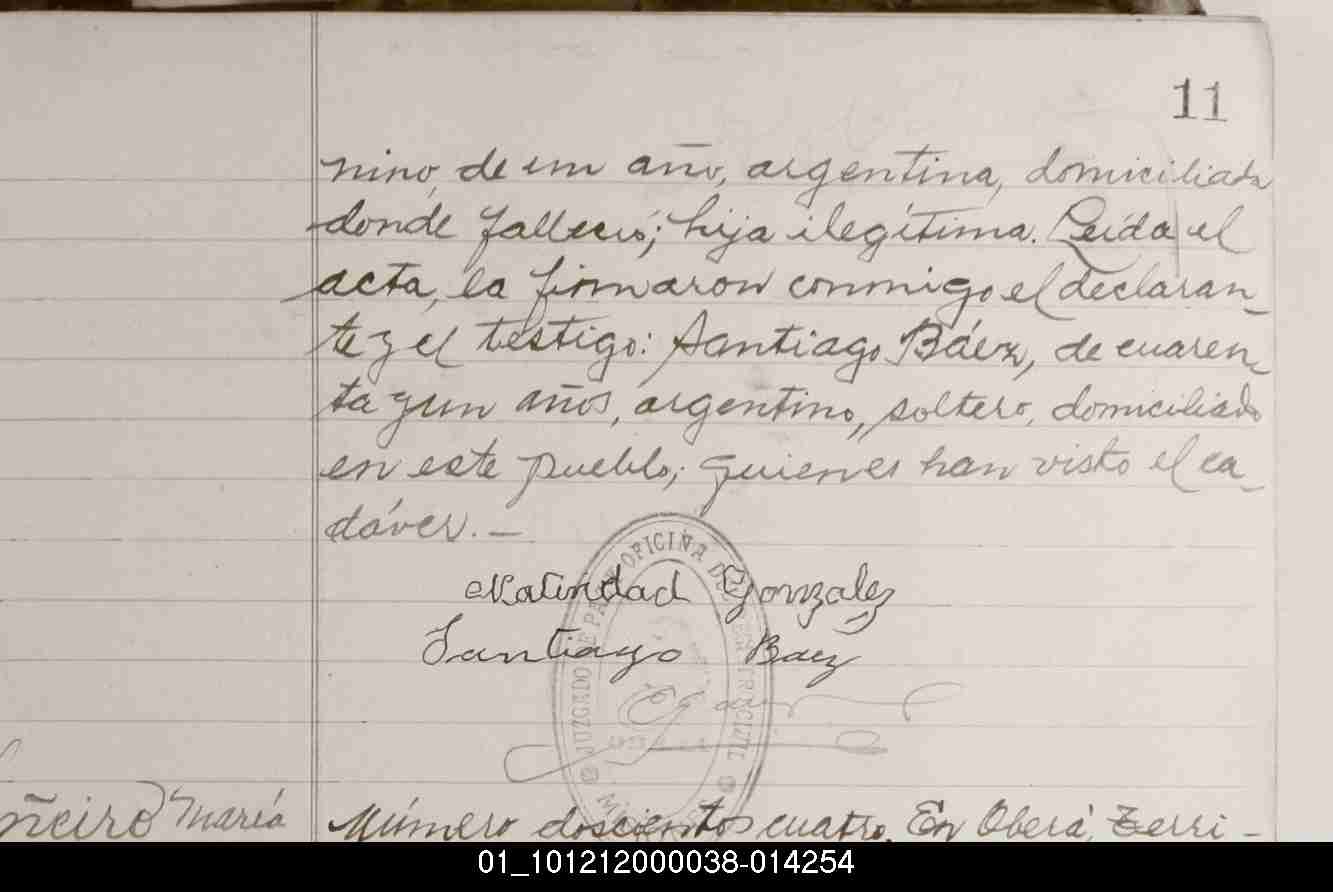 11
nino, de un año, argentina, domiciliada
donde falleció; hija ilegítima. Leída el
acta, la firmaron conmigo el declaran-
te y el testigo: Santiago Báez, de cuaren-
ta y un años, argentino, soltero, domiciliado
en este pueblo; quienes han visto el ca-
dáver. —
JUZGADO DE PAZ Y OFICINA DE
Natividad Gonzalez
Santiago Baez
ñeiro María
Número doscientos cuatro. En Oberá, Terri-
01_101212000038-014254